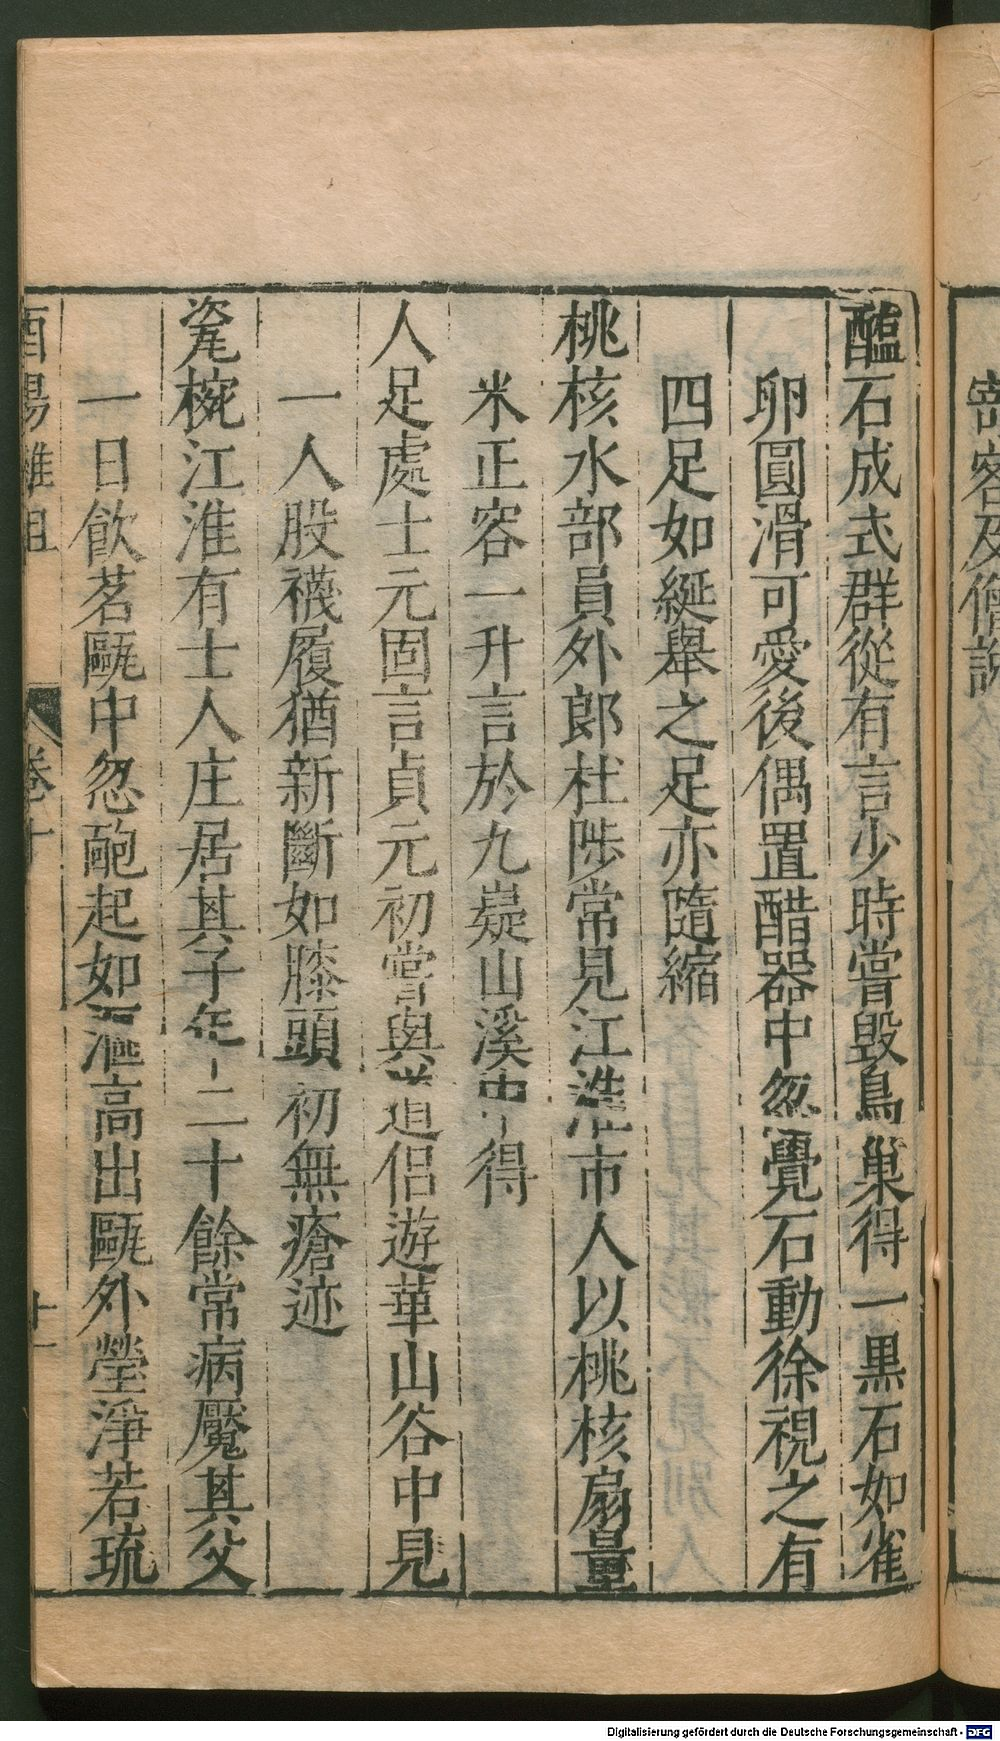 醯石成式群從有言少時嘗毀鳥巢得一黑石如雀
卵圓滑可愛後偶置醋器中忽覺石動徐視之有
四足如綖舉之足亦隨縮
桃核水部員外郎杜陟常見江淮市人以桃核扇量
米正容一升言於九嶷山溪中得
人足處士元固言貞元初嘗與道侶遊華山谷中見
一人股襪履猶新斷如膝頭初無瘡迹
瓷椀江淮有士人庄居其子年二十餘常病魘其父
一日飲茗甌中忽𤿈起如漚高出甌外瑩淨若琉
酉陽雜俎
卷十
十一
客及僧說
Digitalisierung gefördert durch die Deutsche Forschungsgemeinschaft - DFG